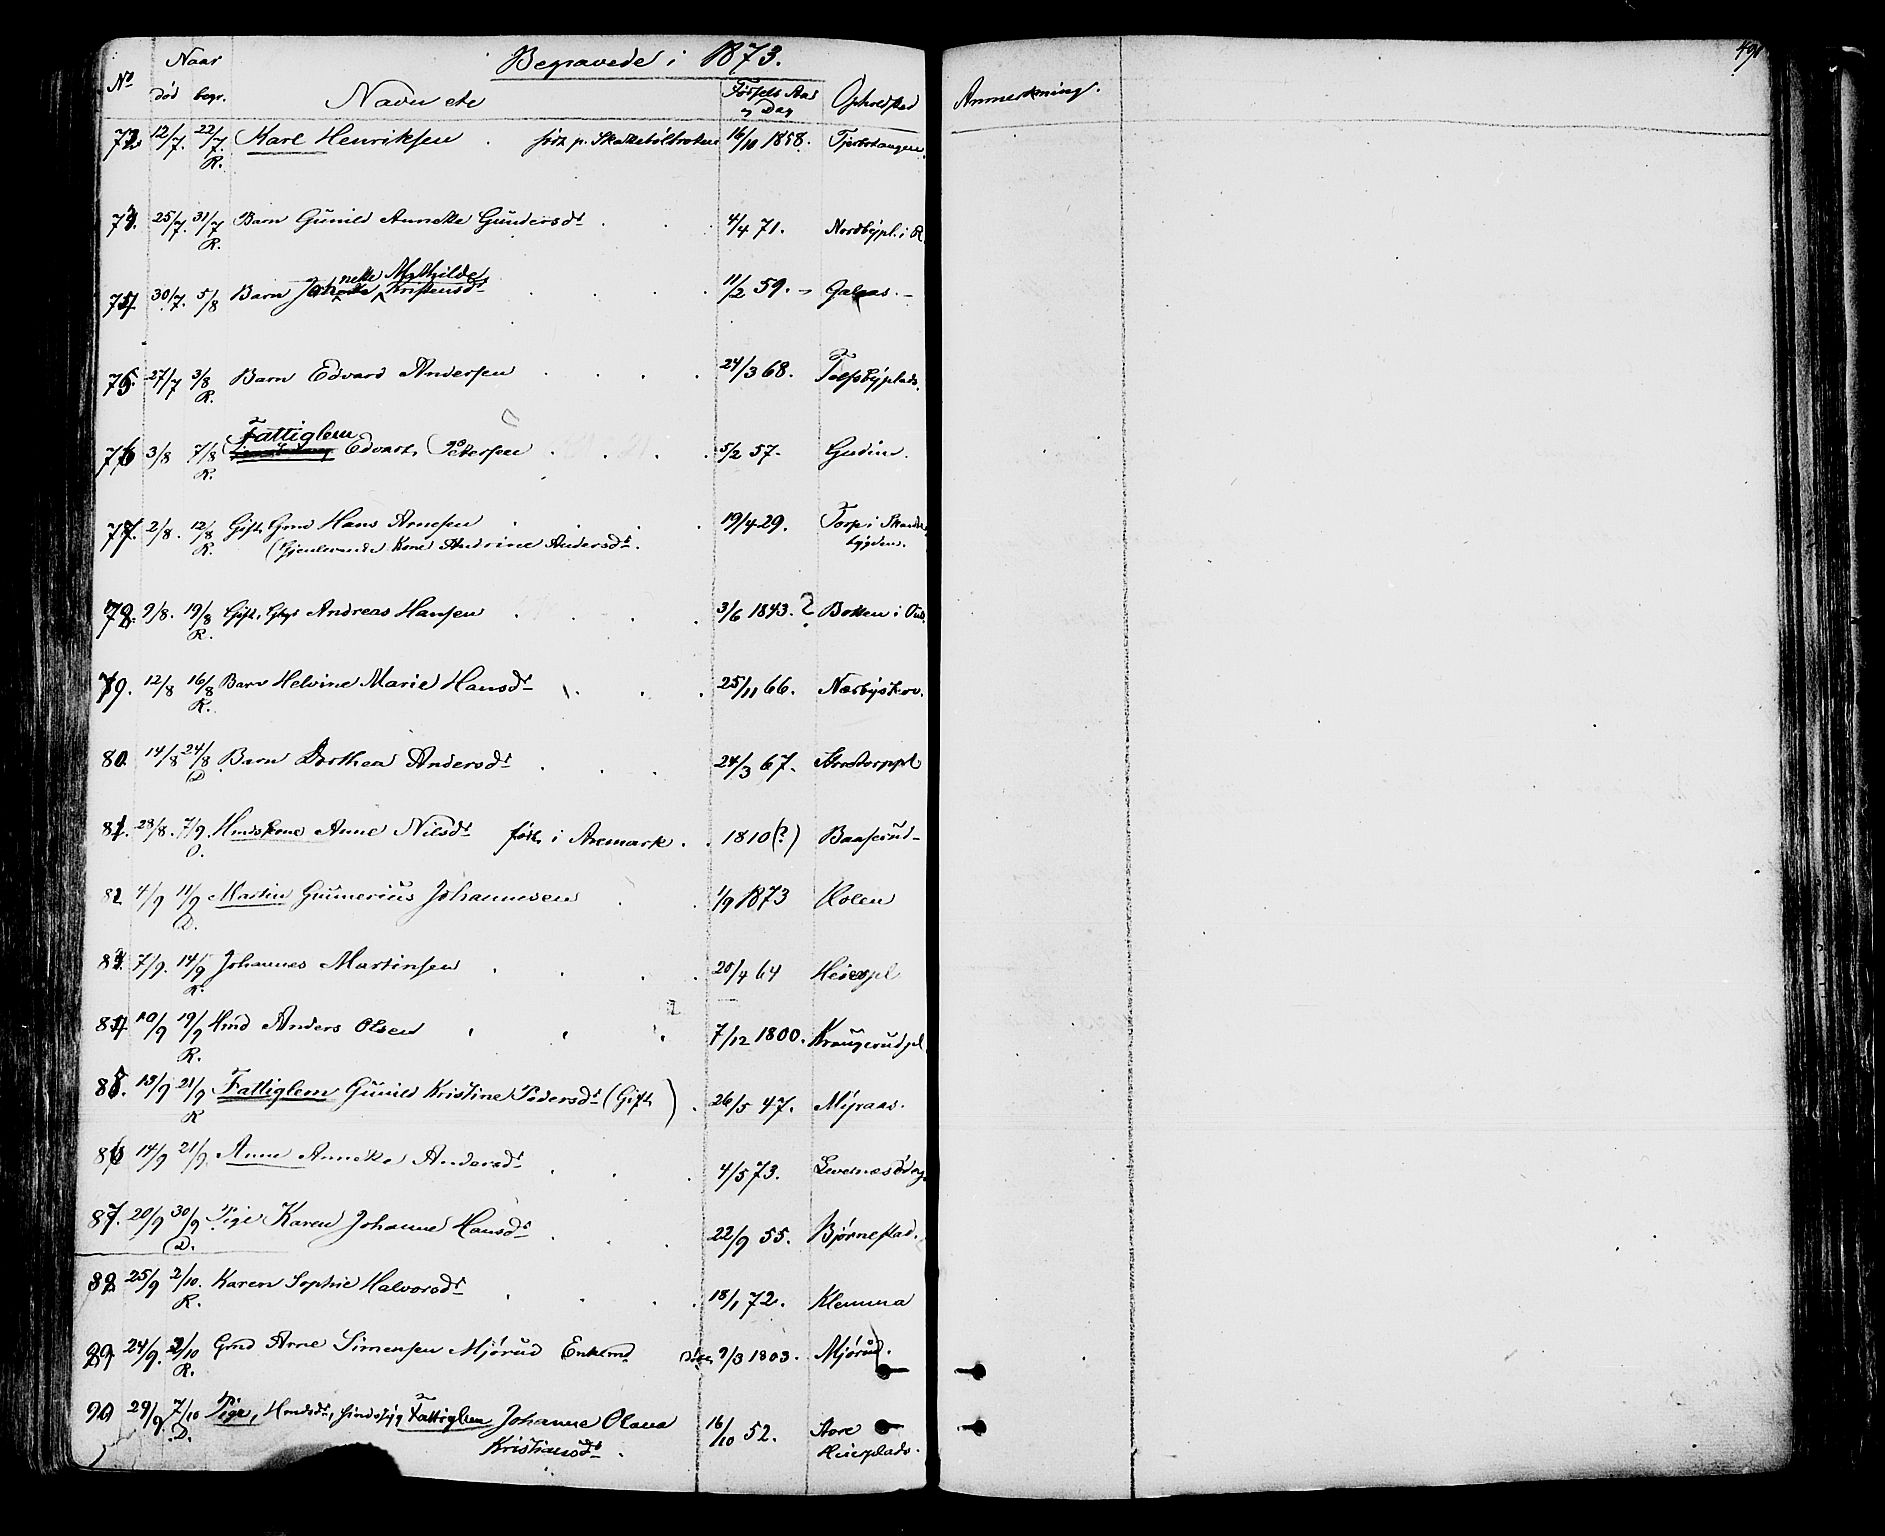 491
Begravede i 1873.
No Naar død begr. Navn etc Fødsels Aar og Dag Opholdsted Anmerkning.
72 12/7. 22/7 R. Karl Henriksen . født p. 16/10 1858. Fjerbotangen.
73. 25/7. 31/7 R. Barn Gunild Annette Gundersdt 4/4 71. Nordbypl. i R.
nette Mathilde
74 30/7. 5/8 Barn Johanne Kristensdt 11/2 59. Galaas.
75. 27/7 3/8 R. Barn Edvard Andersen 24/3 68. Tolfsbyplads.
Fattiglem
76 3/8 7/8 R. Edvart Petersen 5/2 57. Gudim.
77. 2/8. 12/8 R. Gift Gmd Hans Arnesen 19/4 29. Torp i
(Gjenlevende Kone Andrine Andersdt. bygden.
78. 9/8. 19/8 R. Gift, Andreas Hansen 3/6 1843. ? Botten i
79. 12/8 16/8 R. Barn Helvine Marie Hansdt 25/11 66. Næsbyskov.
80 14/8 24/8 D. Barn Dorthea Andersdt 24/3 67.
81. 28/8. 7/9 O. Hmdskone Anne Nilsdt født i Aremark . 1810 (?) Baaserud
82 4/9 11/9 D. Martin Gunnerius Johannesen 1/9 1873 Holen
83. 7/9. 14/9 R. Johannes Martinsen 20/4 64 Heierpl
84 10/9 19/9 R. Hmd Anders Olsen 7/12 1800. Krangerudpl.
85. 13/9 21/9 R Fattiglem Gunild Kristine Pedersdt (Gift) 26/5 47. Myraas.
86 14/9 21/9. Anne Annette Andersdt 4/5 73.
87. 20/9 30/9 D. Pige Karen Johanne Hansdt 22/9 55. Bjørnestad.
88 25/9 2/10. R. Karen Sophie Halvorsdt 18/1 72. Klemma
89 24/9. 2/10 R. Gmd Arne Simensen Mjørud Enkemd 9/3 1803. Mjørud.
90 29/9. 7/10 D. Pige, Hmdsdt, sindssyg Fattiglem Johanne Olava 16/10 52. Aore
Kristiansdt . Heierplads.